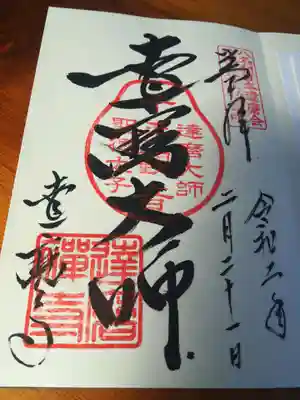 奉拝
令和二年
二月二十一日
達磨大師
達磨大師
達磨寺
達磨
禪寺